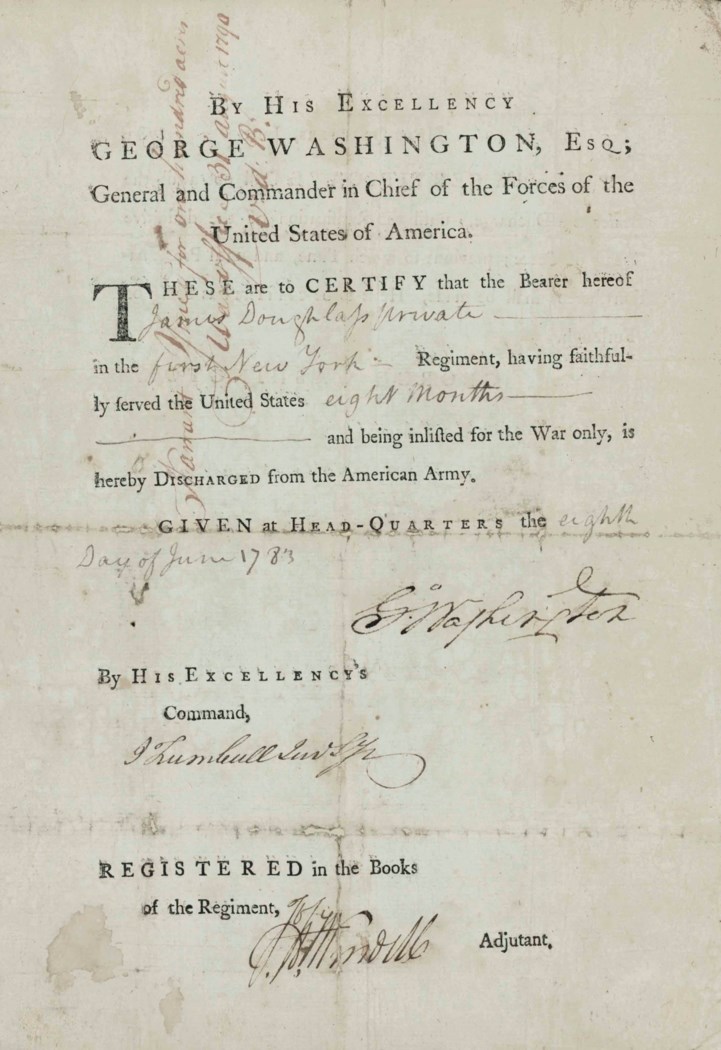 By His Excellency
GEORGE WASHINGTON, Esq;
General and Commander in Chief of the Forces of the
United States of America.
THESE are to CERTIFY that the Bearer hereof
James Doughlaſs private
in the first New York Regiment, having faithful-
ly ſerved the United States eight Months
and being inliſted for the War only, is
hereby Discharged from the American Army.
GIVEN at Head-Quarters the eighth
Day of June 1783
Go: Waſhington
By His Excellency's
Command,
J Trumbull Junr Sy
REGISTERED in the Books
of the Regiment,
Adjutant.
for one hundred acres
1790